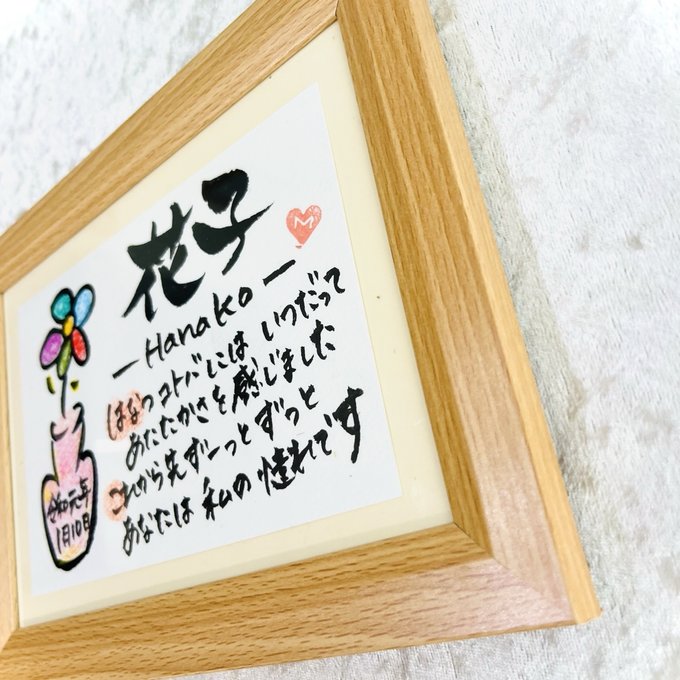 花子
M
—Hanako—
はなつコトバには いつだって
あたたかさを感じました
これから先ずーっとずっと
あなたは私の憧れです
令和元年
1月10日